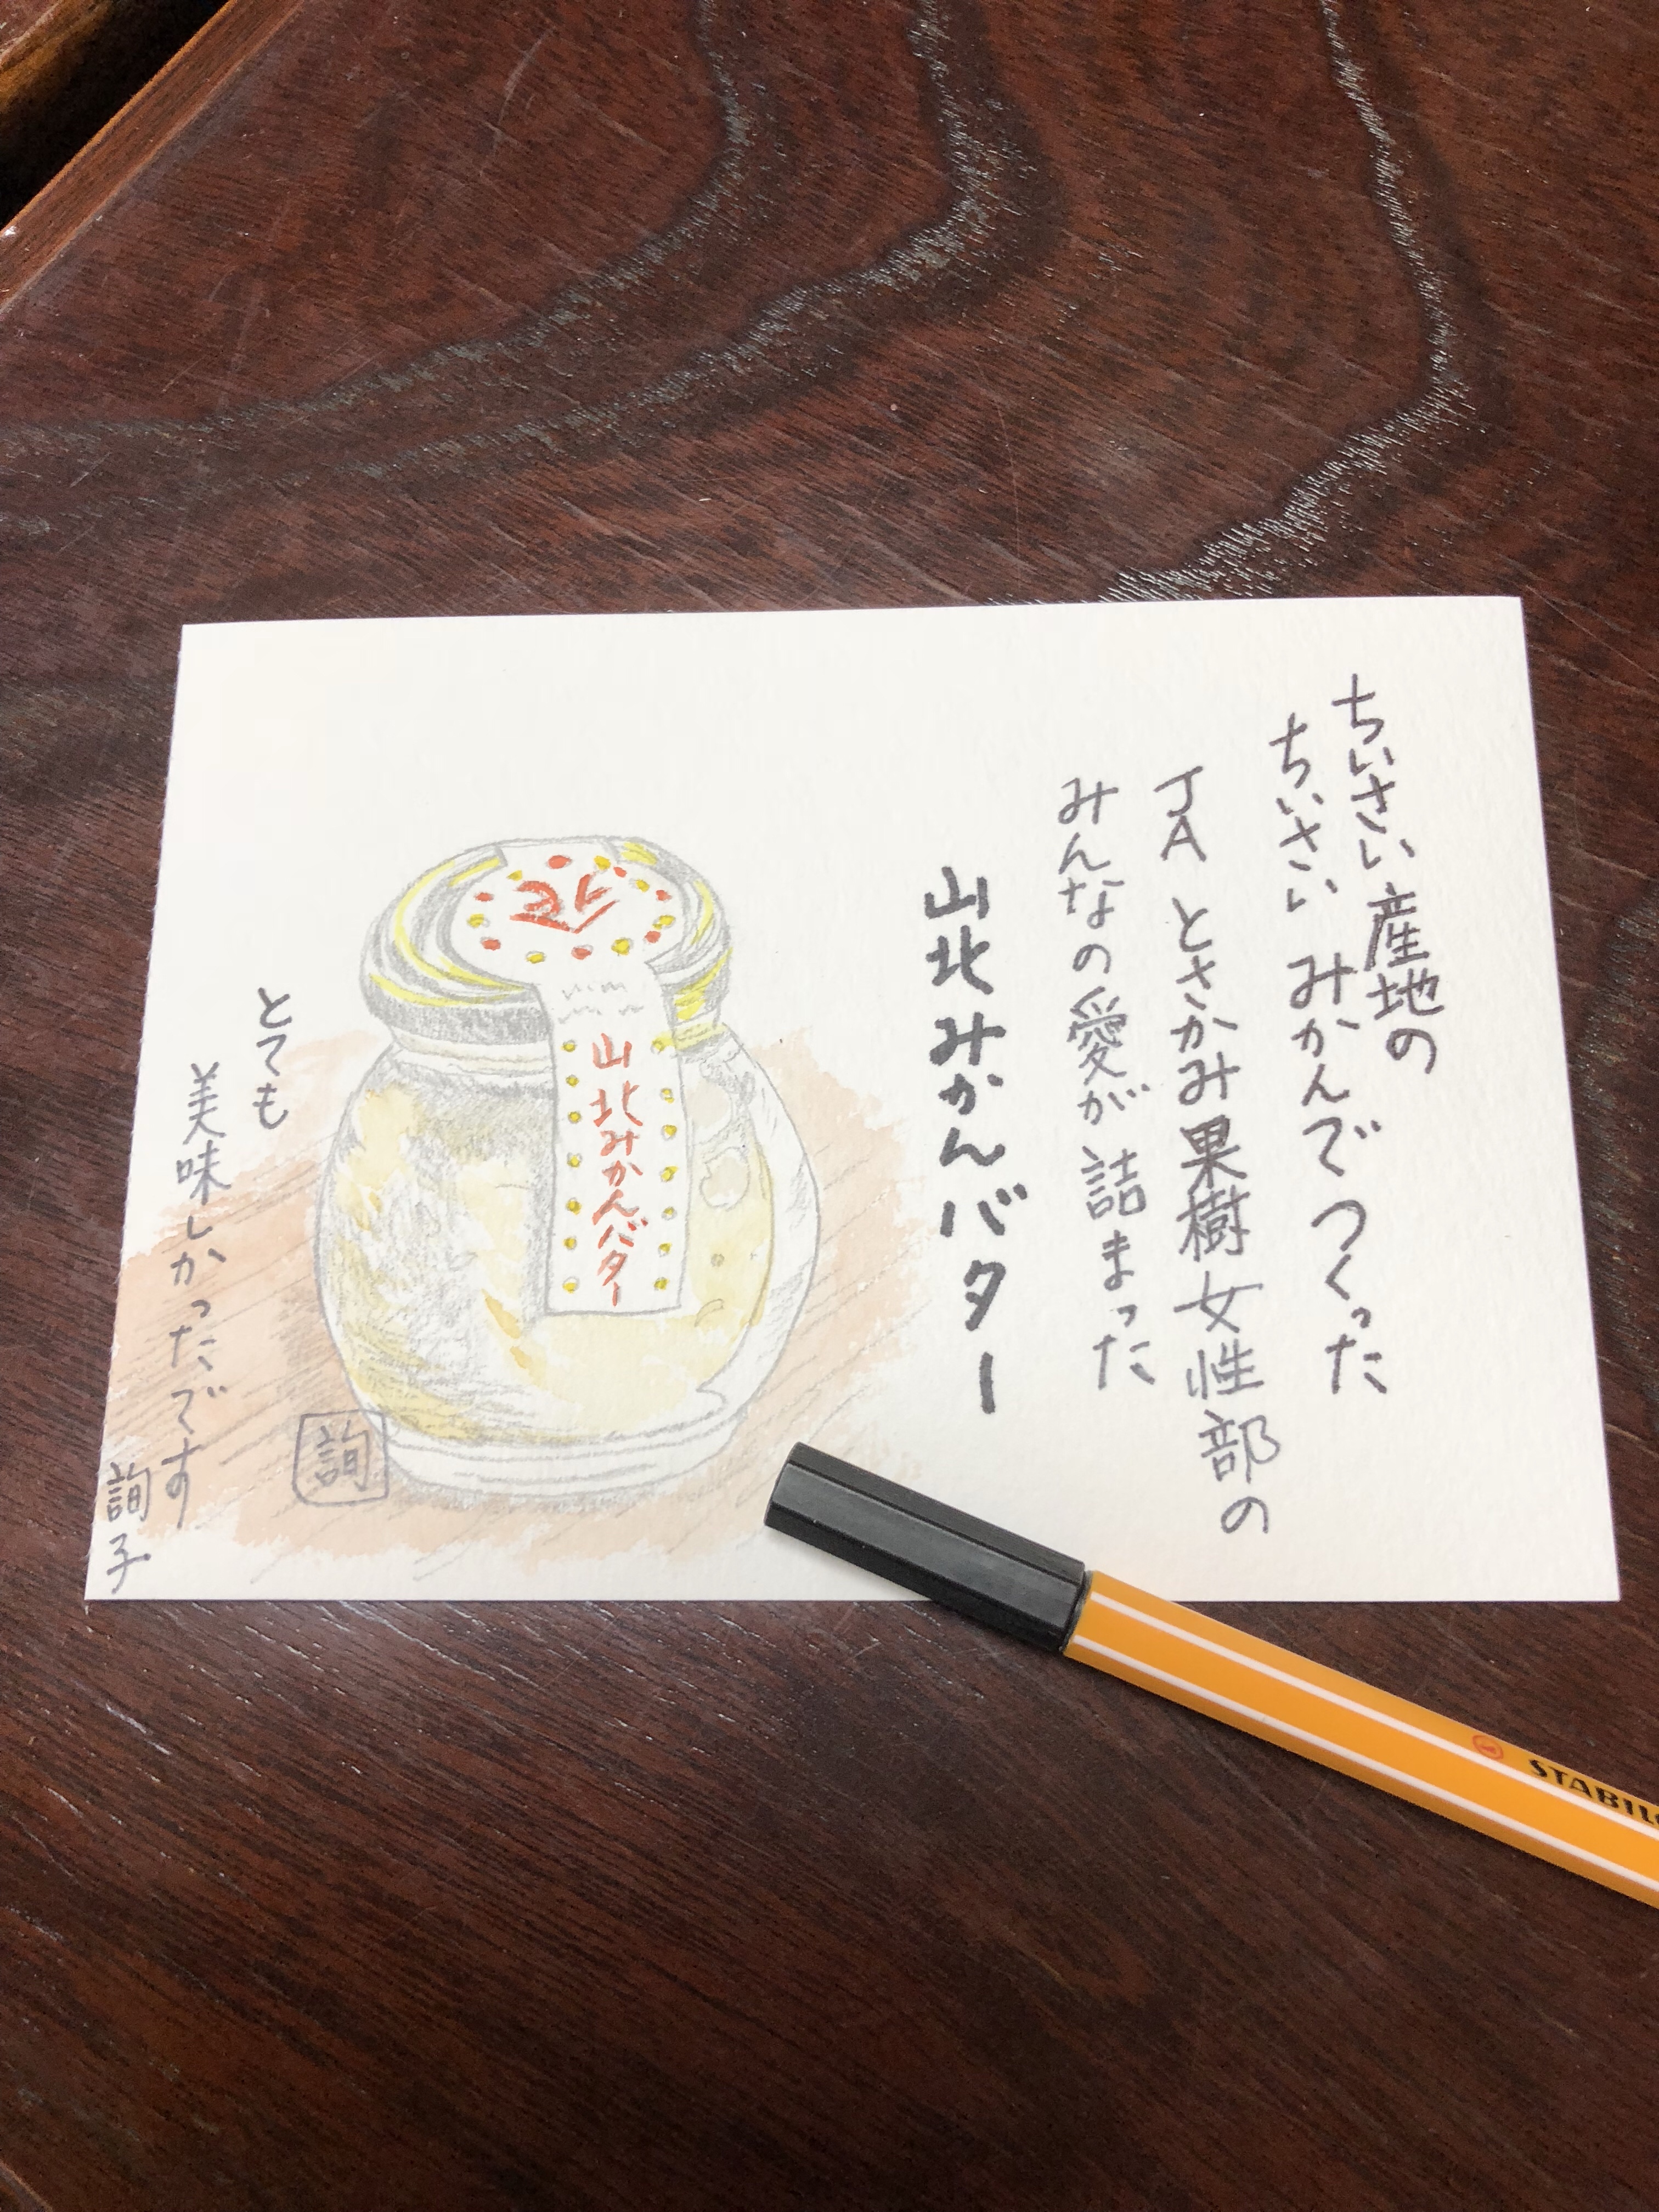 ちいさい産地の
ちいさい みかんでつくった
JA とさかみ果樹女性部の
みんなの愛が詰まった
山北みかんバター
山北みかんバター
とても
美味しかったです
詢子
詢
STABILO